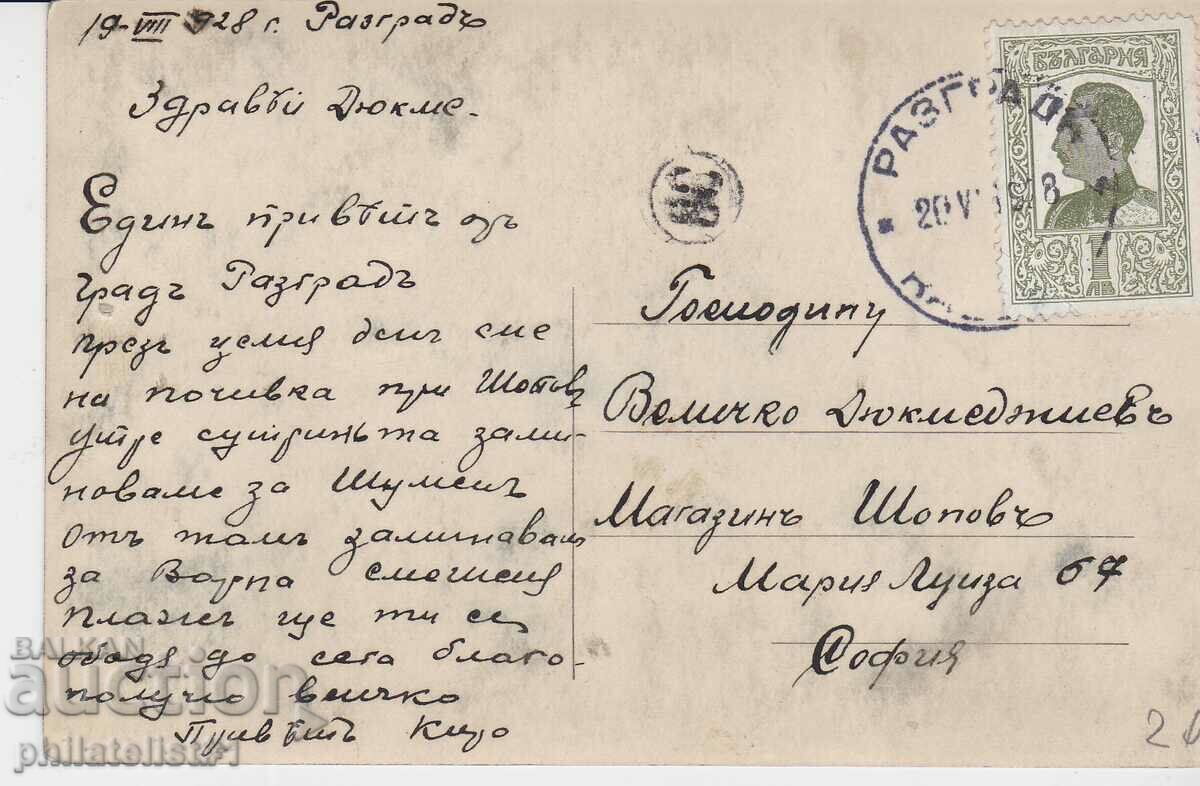 19-VIII 928 г. Разградъ
Здравѣй Дюкме.
Единъ привѣтъ отъ
градъ Разградъ
презъ целия день сме
на почивка при Шопов
утре сутриньта зами-
новаме за Шуменъ
отъ тамъ заминавам
за Варна
плажъ ще ти се
обадя до сега благо-
получно всичко
Привѣтъ Киро
Господину
Величко Дюкмеджиевъ
Магазинъ Шоповъ
Мария Луиза 67
София
РАЗГРАДЪ
20 V 8
БЪЛГАРИЯ
1
ЛВ
BALKAN
auction
philatelist#1